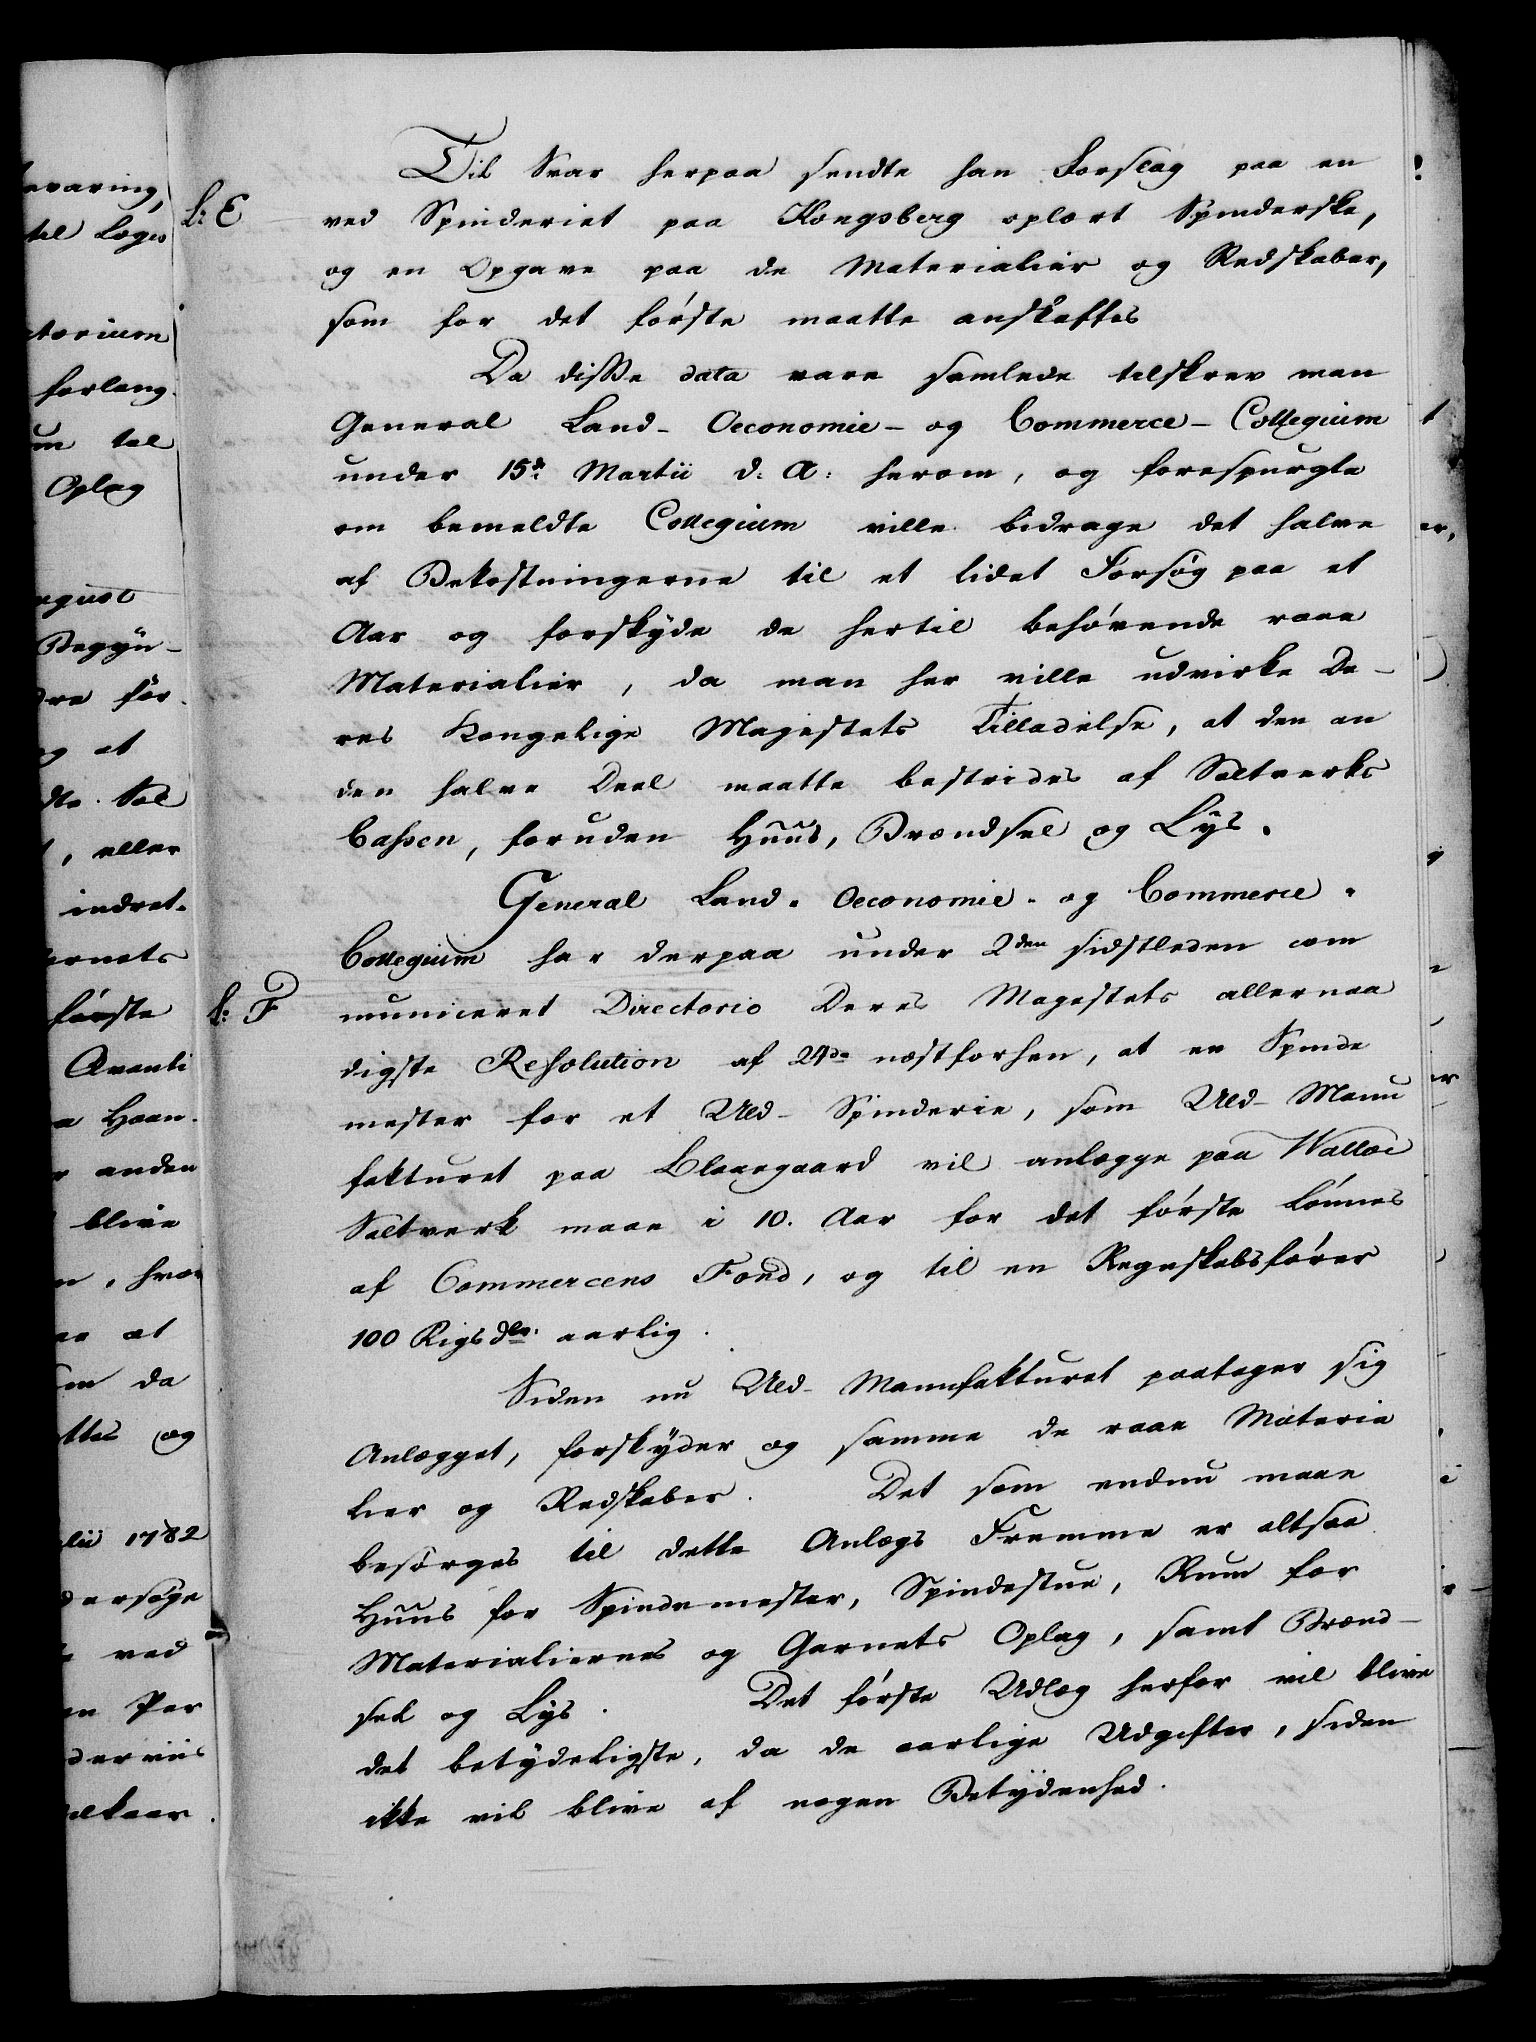 Til Svar herpaa sendte han Forslag paa en
L: E ved Spinderiet paa Kongsberg oplært Spinderske,
og en Opgave paa de Materialier og Redskaber,
som for det første maatte anskaffes
Da disse data vare samlede tilskrev man
General Land- Oeconomie- og Commerce- Collegium
under 15de Martii d: A: herom, og forespurgte
om bemeldte Collegium ville bidrage det halve
af Bekostningerne til et lidet Forsøg paa et
Aar og forskyde de hertil behøvende raae
Materialier, da man her ville udvirke De-
res Kongelige Majestets Tilladelse, at den an
den halve Deel maatte bestrides af Saltverks
Cassen, foruden Huus, Brændsel og Lys.
General Land- Oeconomie- og Commerce-
Collegium har derpaa under 2den sidstleden com
L: F municeret Directorio Deres Magestets allernaa
digste Resolution af 24de næstforhen, at en Spinde
mester for et Uld- Spinderie, som Uld- Manu
fakturet paa Blaagaard vil anlægge paa Walløe
Saltverk maae i 10. Aar for det første lønnes
af Commercens Fond, og til en Regnskabsfører
100 Rigsdlr. aarlig.
Siden nu Uld- Manufakturet paatager sig
Anlægget, forskyder og samme de raae Materia
lier og Redskaber. Det som endnu maae
besørges til dette Anlægs Fremme er altsaa
Huus for Spindemester, Spindestue, Rum for
Materialiernes og Garnets Oplag, samt Brænd-
sel og Lys. Det første Udlæg herfor vil blive
det betydeligste, da de aarlige Udgifter, siden
ikke vil blive af nogen Betydenhed.